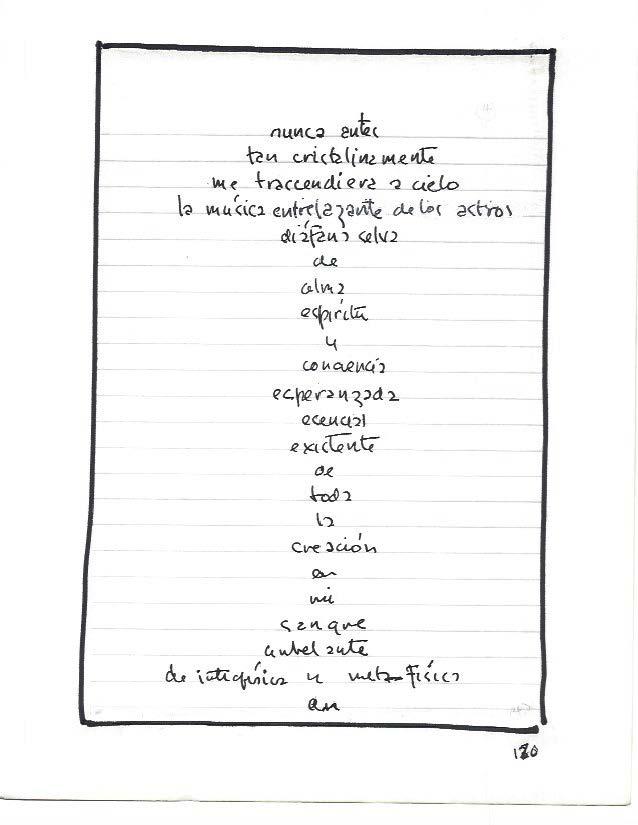 nunca antes
tan cristalinamente
me trascendiera a cielo
la música entrelazante de los astros
diáfana selva
de
alma
espíritu
y
conciencia
esperanzada
esencial
existente
de
toda
la
creación
en
mi
sangre
anhelante
de y meta-física
en
120